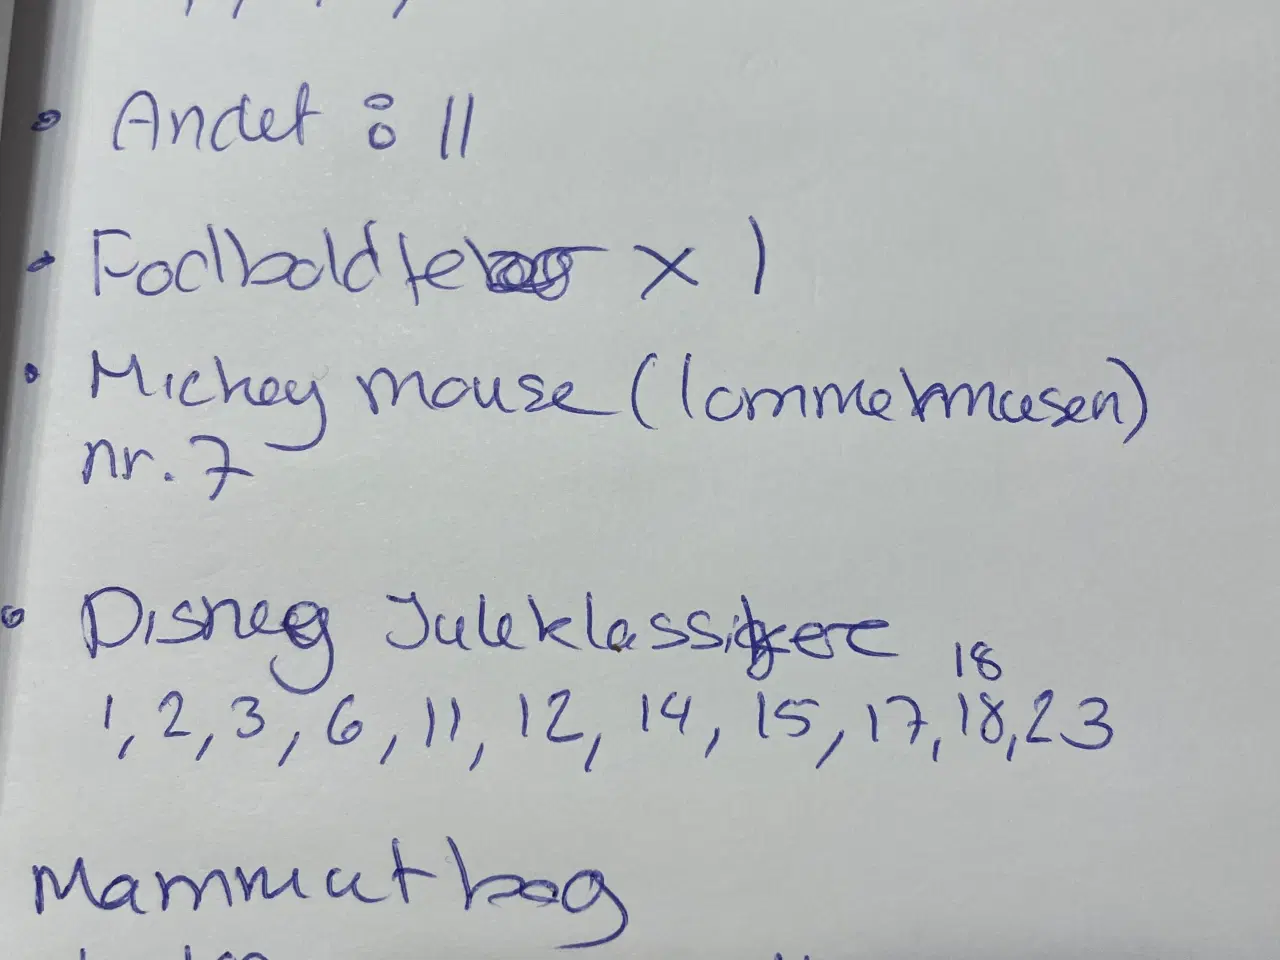 • Andet : 11
• x 1
• Mickey mouse (lommemusen)
nr. 7
• Disney Juleklassikere
18
1, 2, 3, 6, 11, 12, 14, 15, 17, 18, 23
Mammut bog